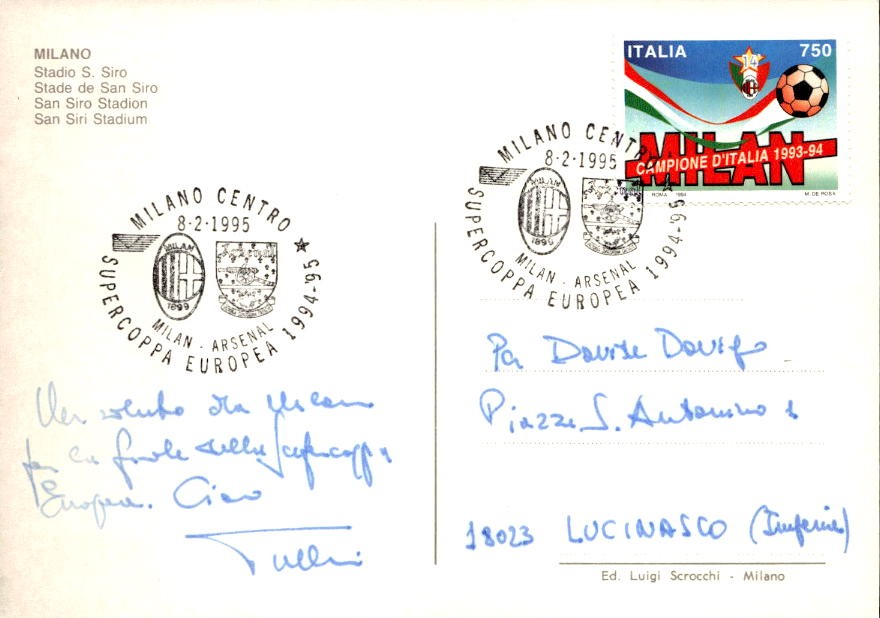 MILANO
Stadio S. Siro
Stade de San Siro
San Siro Stadion
San Siri Stadium
ITALIA 750
14
MILAN
CAMPIONE D'ITALIA 1993-94
ROMA 1994 M. DE ROSA
MILANO CENTRO
8-2-1995
MILAN
1899
MILAN - ARSENAL
SUPERCOPPA EUROPEA 1994-95
MILANO CENTRO
8-2-1995
MILAN
1899
MILAN - ARSENAL
SUPERCOPPA EUROPEA 1994-95
Un saluto da Milano
per la finale della Supercoppa
Europea. Ciao
Per Davide
Piazza S. Antonino 1
18023 LUCINASCO (Imperia)
Ed. Luigi Scrocchi - Milano